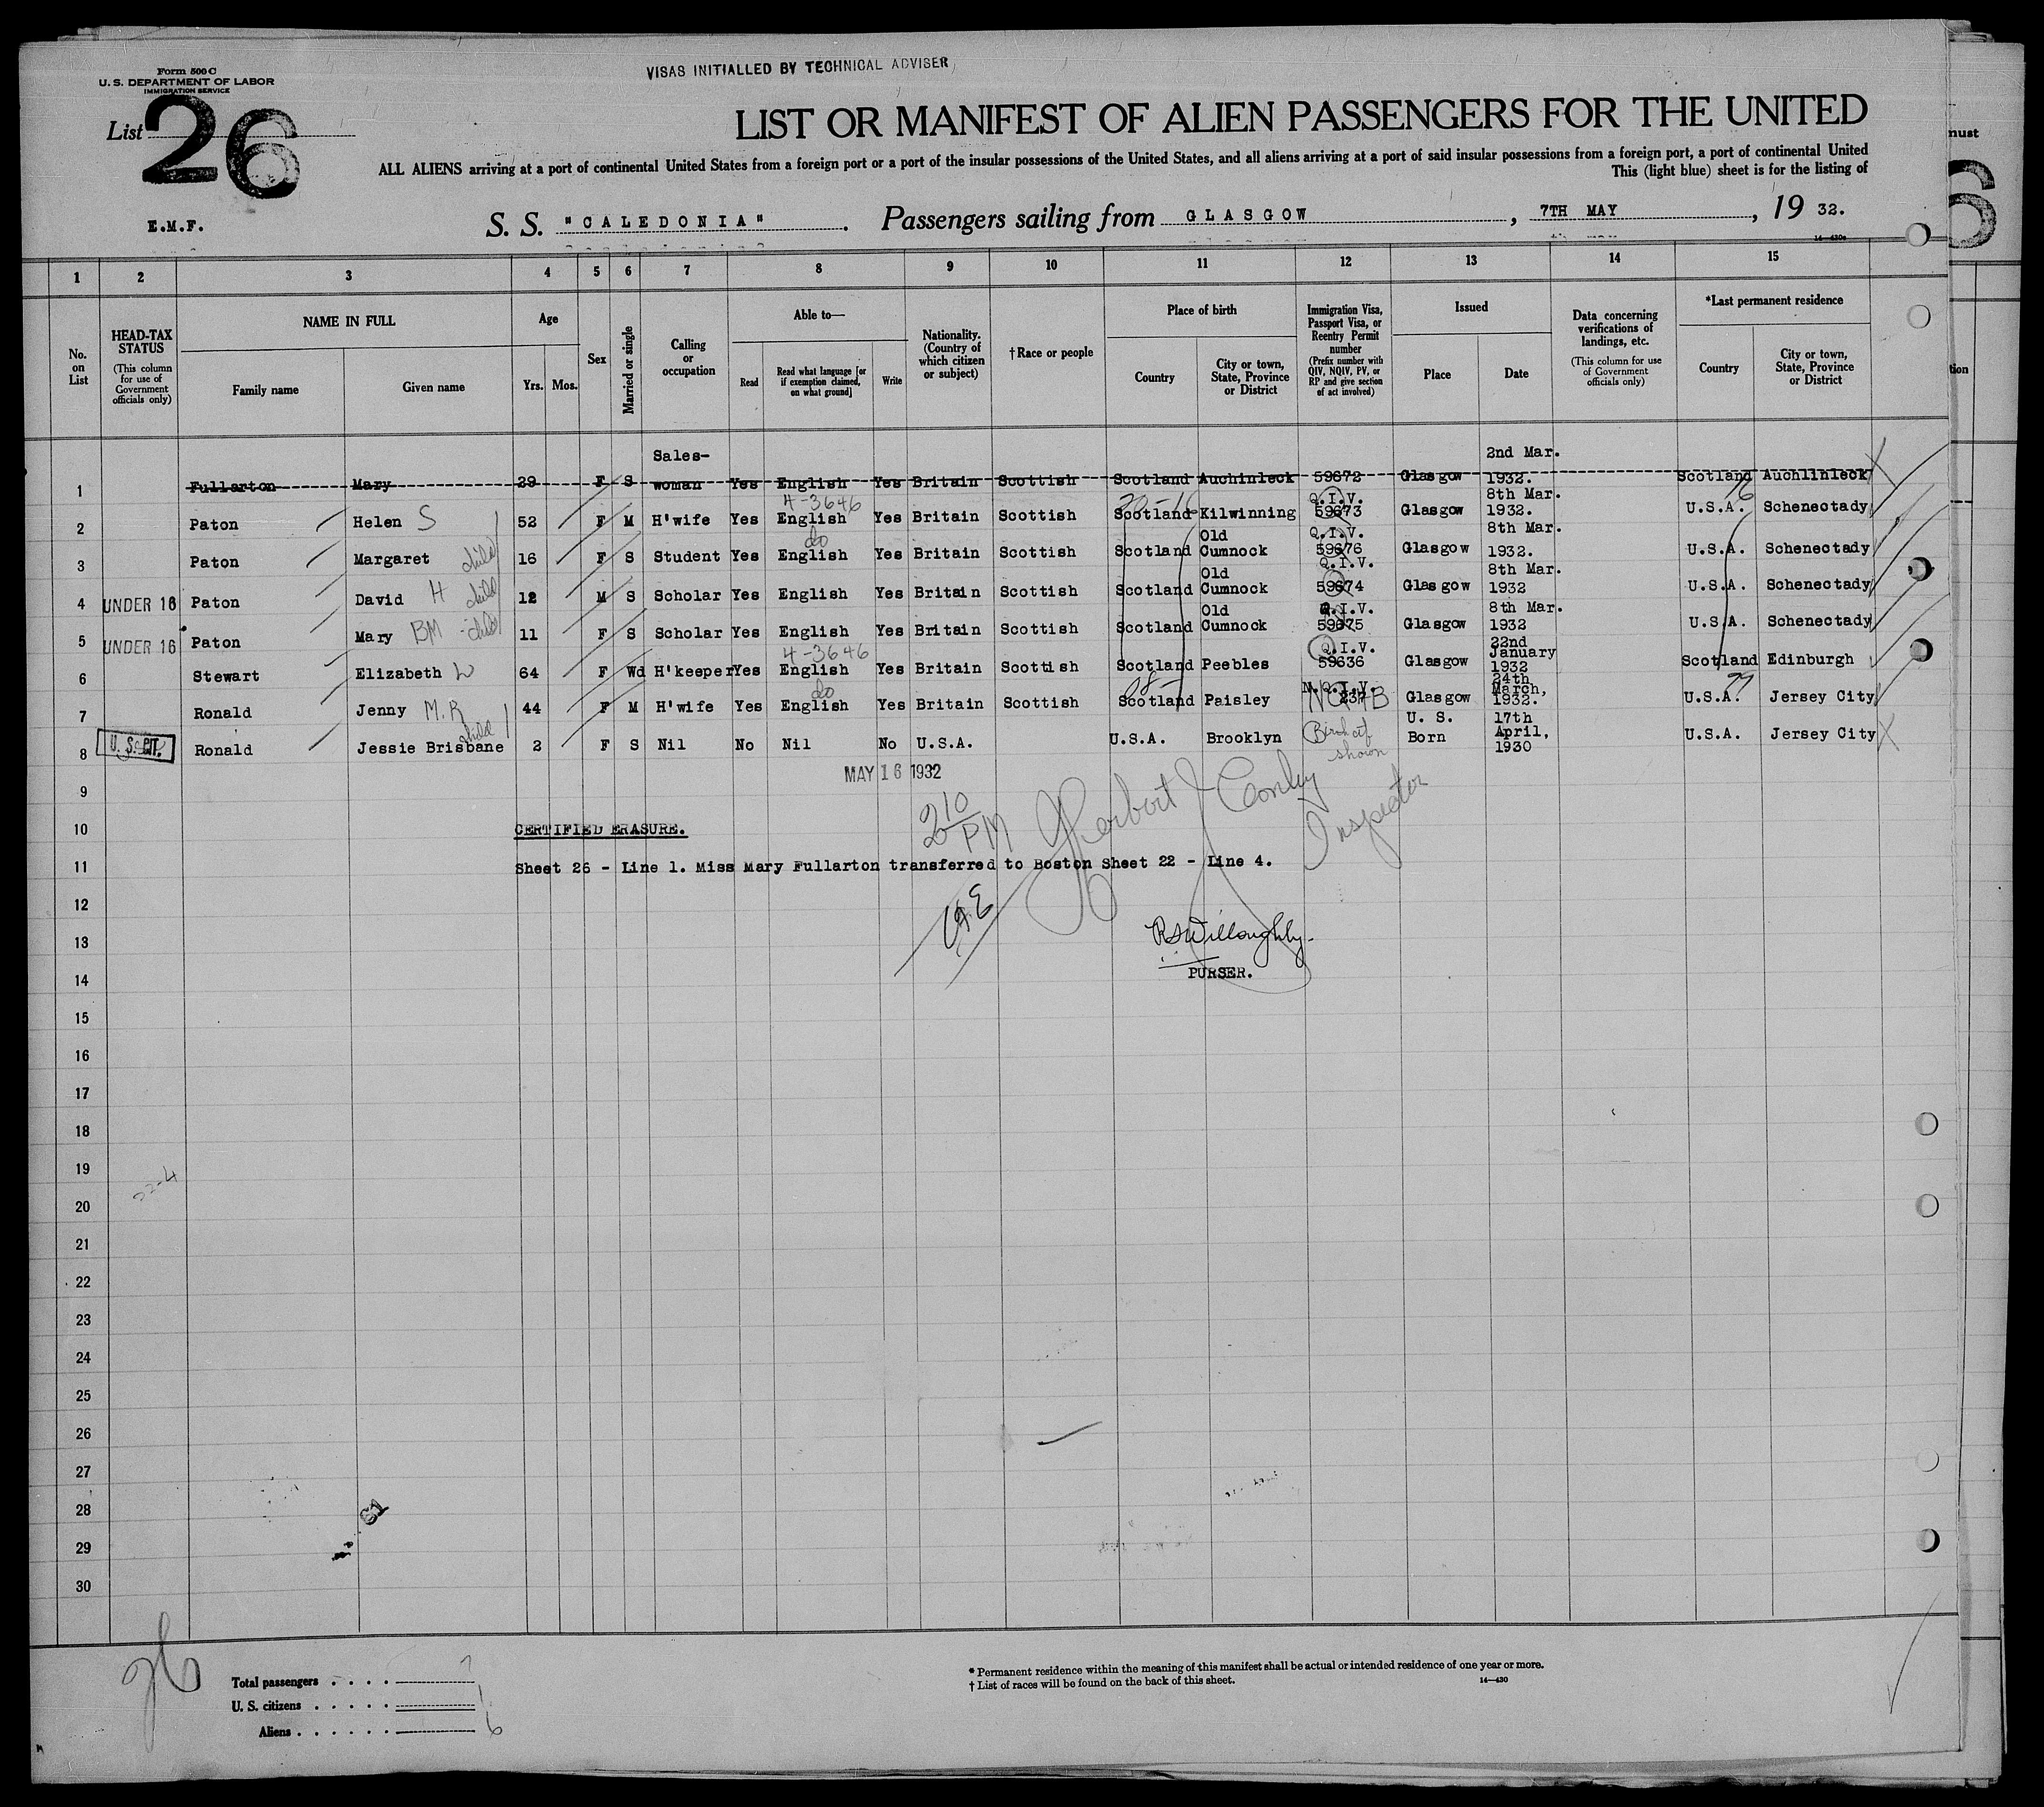 Form 500 C
U. S. DEPARTMENT OF LABOR
IMMIGRATION SERVICE
VISAS INITIALLED BY TECHNICAL ADVISER
List 26
LIST OR MANIFEST OF ALIEN PASSENGERS FOR THE UNITED
ALL ALIENS arriving at a port of continental United States from a foreign port or a port of the insular possessions of the United States, and all aliens arriving at a port of said insular possessions from a foreign port, a port of continental United
This (light blue) sheet is for the listing of
E.M.F.
S. S. "CALEDONIA". Passengers sailing from GLASGOW, 7TH MAY, 19 32.
14—430a
1 2 3 4 5 6 7 8 9 10 11 12 13 14 15
No. on List
HEAD-TAX STATUS (This column for use of Government officials only)
NAME IN FULL
Family name
Given name
Age
Yrs. Mos.
Sex
Married or single
Calling or occupation
Able to—
Read
Read what language [or if exemption claimed, on what ground]
Write
Nationality. (Country of which citizen or subject)
†Race or people
Place of birth
Country
City or town, State, Province or District
Immigration Visa, Passport Visa, or Reentry Permit number (Prefix number with QIV, NQIV, PV, or RP and give section of act involved)
Issued
Place
Date
Data concerning verifications of landings, etc. (This column for use of Government officials only)
*Last permanent residence
Country
City or town, State, Province or District
1 Fullarton Mary 29 F S Sales-woman Yes English Yes Britain Scottish Scotland Auchinleck 59672 Glasgow 2nd Mar. 1932. Scotland Auchlinleck
4-3646
2 Paton Helen S 52 F M H'wife Yes English Yes Britain Scottish Scotland Kilwinning Q.I.V. 59673 Glasgow 8th Mar. 1932. U.S.A. Schenectady
do
3 Paton Margaret child 16 F S Student Yes English Yes Britain Scottish Scotland Old Cumnock Q.I.V. 59676 Glasgow 8th Mar. 1932. U.S.A. Schenectady
4 UNDER 16 Paton David H child 12 M S Scholar Yes English Yes Britain Scottish Scotland Old Cumnock Q.I.V. 59674 Glasgow 8th Mar. 1932 U.S.A. Schenectady
5 UNDER 16 Paton Mary BM child 11 F S Scholar Yes English Yes Britain Scottish Scotland Old Cumnock Q.I.V. 59675 Glasgow 8th Mar. 1932 U.S.A. Schenectady
4-3646
6 Stewart Elizabeth W 64 F Wd H'keeper Yes English Yes Britain Scottish Scotland Peebles Q.I.V. 59636 Glasgow 22nd January 1932 Scotland Edinburgh
do
7 Ronald Jenny M.R 44 F M H'wife Yes English Yes Britain Scottish Scotland Paisley N.Q.I.V. 237 Glasgow 24th March, 1932. U.S.A. Jersey City
8 U. S. CIT. Ronald Jessie Brisbane child 2 F S Nil No Nil No U.S.A. U.S.A. Brooklyn Birth ctf shown U. S. Born 17th April, 1930 U.S.A. Jersey City
MAY 16 1932
9
2 10 PM Herbert J Conley Inspector
10 CERTIFIED ERASURE.
11 Sheet 26 - Line 1. Miss Mary Fullarton transferred to Boston Sheet 22 - Line 4.
12
13
RSWilloughby.
14 PURSER.
15
16
17
18
19
22-4
20
21
22
23
24
25
26
27
28
29
30
26
Total passengers . . . . 7
U. S. citizens . . . . . 1
Aliens . . . . . . 6
* Permanent residence within the meaning of this manifest shall be actual or intended residence of one year or more.
† List of races will be found on the back of this sheet.
14—430